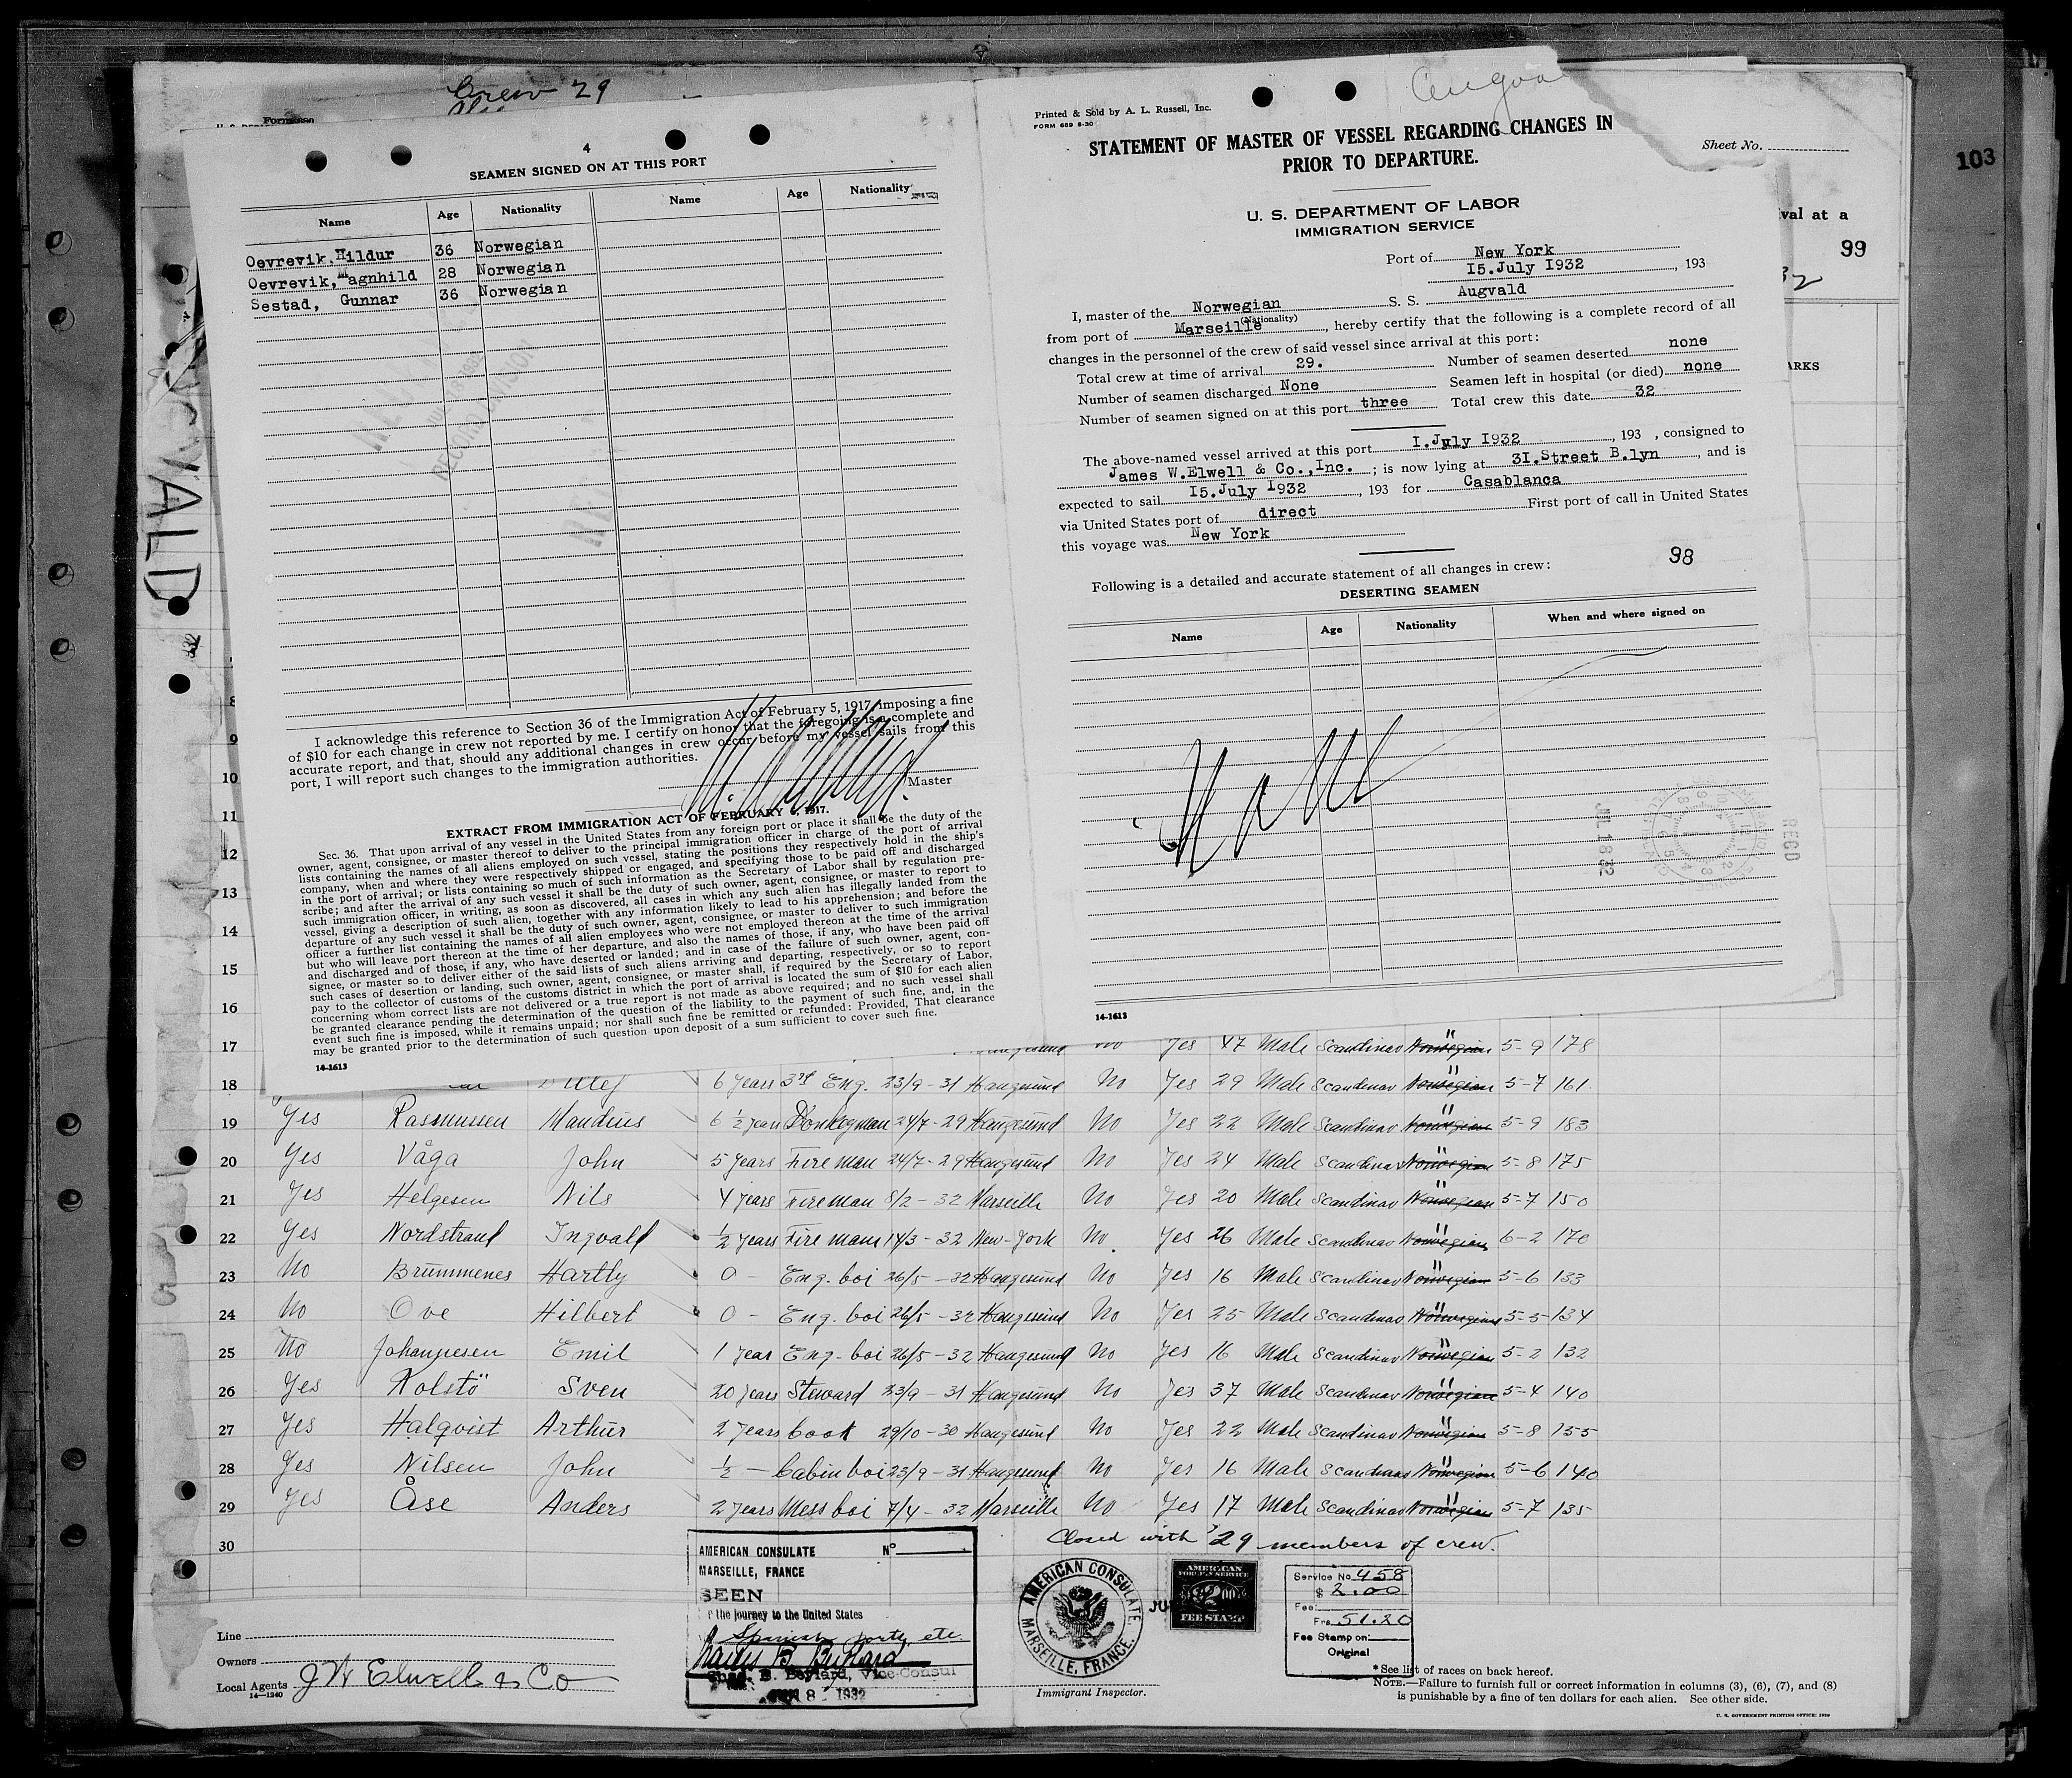 Crew 29
103
Sheet No.
val at a
99
32
ARKS
VALD
4
SEAMEN SIGNED ON AT THIS PORT
Name Age Nationality Name Age Nationality
Oevrevik, Hildur 36 Norwegian
Oevrevik, Magnhild 28 Norwegian
Sestad, Gunnar 36 Norwegian
RECORD DIVISION
I acknowledge this reference to Section 36 of the Immigration Act of February 5, 1917, imposing a fine
of $10 for each change in crew not reported by me. I certify on honor that the foregoing is a complete and
accurate report, and that, should any additional changes in crew occur before my vessel sails from this
port, I will report such changes to the immigration authorities.
Master
EXTRACT FROM IMMIGRATION ACT OF FEBRUARY 5, 1917.
Sec. 36. That upon arrival of any vessel in the United States from any foreign port or place it shall be the duty of the
owner, agent, consignee, or master thereof to deliver to the principal immigration officer in charge of the port of arrival
lists containing the names of all aliens employed on such vessel, stating the positions they respectively hold in the ship's
company, when and where they were respectively shipped or engaged, and specifying those to be paid off and discharged
in the port of arrival; or lists containing so much of such information as the Secretary of Labor shall by regulation pre-
scribe; and after the arrival of any such vessel it shall be the duty of such owner, agent, consignee, or master to report to
such immigration officer, in writing, as soon as discovered, all cases in which any such alien has illegally landed from the
vessel, giving a description of such alien, together with any information likely to lead to his apprehension; and before the
departure of any such vessel it shall be the duty of such owner, agent, consignee, or master to deliver to such immigration
officer a further list containing the names of all alien employees who were not employed thereon at the time of the arrival
but who will leave port thereon at the time of her departure, and also the names of those, if any, who have been paid off
and discharged and of those, if any, who have deserted or landed; and in case of the failure of such owner, agent, con-
signee, or master so to deliver either of the said lists of such aliens arriving and departing, respectively, or so to report
such cases of desertion or landing, such owner, agent, consignee, or master shall, if required by the Secretary of Labor,
pay to the collector of customs of the customs district in which the port of arrival is located the sum of $10 for each alien
concerning whom correct lists are not delivered or a true report is not made as above required; and no such vessel shall
be granted clearance pending the determination of the question of the liability to the payment of such fine, and, in the
event such fine is imposed, while it remains unpaid; nor shall such fine be remitted or refunded: Provided, That clearance
may be granted prior to the determination of such question upon deposit of a sum sufficient to cover such fine.
14-1613
Printed & Sold by A. L. Russell, Inc.
FORM 689 8-30
STATEMENT OF MASTER OF VESSEL REGARDING CHANGES IN
PRIOR TO DEPARTURE.
U. S. DEPARTMENT OF LABOR
IMMIGRATION SERVICE
Port of New York
15. July 1932, 193
I, master of the Norwegian S. S. Augvald
(Nationality)
from port of Marseille, hereby certify that the following is a complete record of all
changes in the personnel of the crew of said vessel since arrival at this port:
Total crew at time of arrival 29. Number of seamen deserted none
Number of seamen discharged None Seamen left in hospital (or died) none
Number of seamen signed on at this port three Total crew this date 32
The above-named vessel arrived at this port I. July 1932, 193 , consigned to
James W. Elwell & Co., Inc. ; is now lying at 31. Street B.lyn, and is
expected to sail 15. July 1932, 193 for Casablanca
via United States port of direct First port of call in United States
this voyage was New York
98
Following is a detailed and accurate statement of all changes in crew:
DESERTING SEAMEN
Name Age Nationality When and where signed on
REC'D
JUL 18 32
14-1613
8
9
10
11
12
13
14
15
16
17 No Yes 47 Male Scandinav Norwegian " 5-9 178
18 6 years 3rd Eng. 23/9-31 Haugesund No Yes 29 Male Scandinav Norwegian " 5-7 161
19 Yes Rasmussen Mandius 6 1/2 years Donkeyman 24/7-29 Haugesund No Yes 22 Male Scandinav Norwegian " 5-9 183
20 Yes Våga John 5 years Fireman 24/7-29 Haugesund No Yes 24 Male Scandinav Norwegian " 5-8 175
21 Yes Helgesen Nils 4 years Fireman 8/2-32 Marseille No Yes 20 Male Scandinav Norwegian " 5-7 150
22 Yes Nordstrand Ingvald 1/2 years Fireman 14/3-32 New-York No Yes 26 Male Scandinav Norwegian " 6-2 170
23 No Brummenes Hartly 0 - Eng. boi 26/5-32 Haugesund No Yes 16 Male Scandinav Norwegian " 5-6 133
24 No Ove Hilbert 0 - Eng. boi 26/5-32 Haugesund No Yes 25 Male Scandinav Norwegian " 5-5 134
25 No Johannesen Emil 1 year Eng. boi 26/5-32 Haugesund No Yes 16 Male Scandinav Norwegian " 5-2 132
26 Yes Kolstö Sven 20 years Steward 23/9-31 Haugesund No Yes 37 Male Scandinav Norwegian " 5-4 140
27 Yes Halqvist Arthur 2 years Cook 29/10-30 Haugesund No Yes 22 Male Scandinav Norwegian " 5-8 155
28 Yes Nilsen John 1/2 - Cabin boi 23/9-31 Haugesund No Yes 16 Male Scandinav Norwegian " 5-6 140
29 Yes Åse Anders 2 years Mess boi 7/4-32 Marseille No Yes 17 Male Scandinav Norwegian " 5-7 135
30 Closed with 29 members of crew.
AMERICAN CONSULATE No
MARSEILLE, FRANCE
SEEN
r the journey to the United States
Spanish ports, etc.
Chas. B. Beylard, Vice Consul
8 1932
AMERICAN CONSULATE
MARSEILLE, FRANCE.
AMERICAN
FOREIGN SERVICE
$2.00
FEE STAMP
Service No 458
$ 2.00
Fee:
Frs 51.20
Fee Stamp on:
Original
Line
Owners
Local Agents J W Elwell & Co
14-1240
Immigrant Inspector.
*See list of races on back hereof.
NOTE.—Failure to furnish full or correct information in columns (3), (6), (7), and (8)
is punishable by a fine of ten dollars for each alien. See other side.
U. S. GOVERNMENT PRINTING OFFICE: 1929